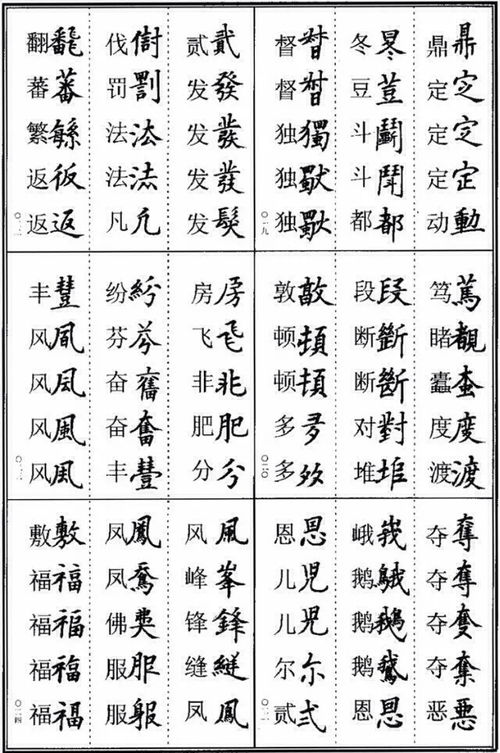 鼎鼎
定定
定定
定定
动動
冬冬
豆豆
斗鬪
斗鬥
都都
督督
督督
独獨
独獸
独獸
〇一九
笃篤
睹覩
蠹蚕
度度
渡渡
段段
断斷
断斷
对對
堆垖
敦敦
顿頓
顿頓
多多
多
〇二〇
夺奪
夺奪
夺
夺奪
恶悪
峨峩
鹅䳘
鹅鵝
鹅鵞
恩恩
恩恩
儿児
儿兒
尔尒
贰弍
〇二一
贰貳
发發
发發
发發
发髮
伐
罚罰
法法
法法
凡凢
翻飜
蕃蕃
繁
返彶
返返
〇二二
房房
飞飞
非非
肥肥
分分
纷紛
芬芬
奋奮
奋奮
丰豐
丰豐
风風
风凬
风風
风風
〇二三
风風
峰峯
锋鋒
缝縫
凤鳳
凤鳳
凤
佛
服服
服
敷敷
福福
福福
福福
福福
〇二四